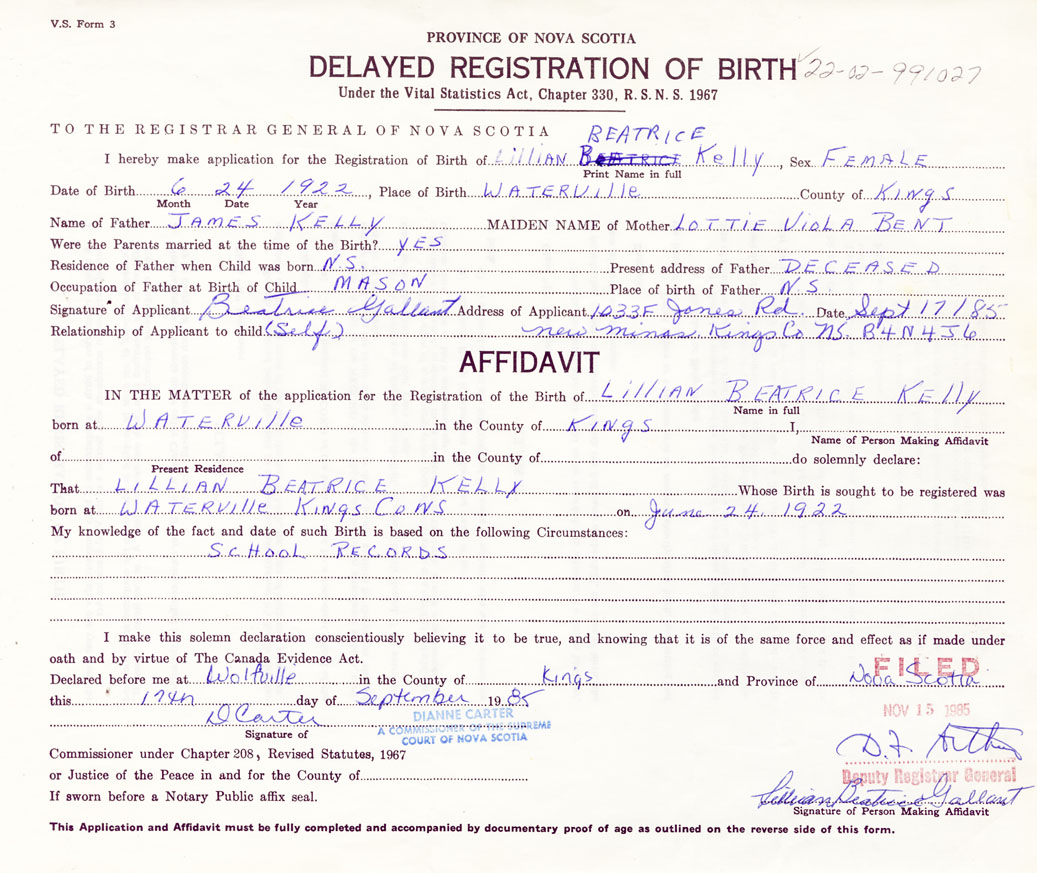 V.S. Form 3
PROVINCE OF NOVA SCOTIA
DELAYED REGISTRATION OF BIRTH 22-02-991027
Under the Vital Statistics Act, Chapter 330, R.S.N.S. 1967
TO THE REGISTRAR GENERAL OF NOVA SCOTIA BEATRICE
I hereby make application for the Registration of Birth of Lillian BEATRICE Kelly, Sex FEMALE
Print Name in full
Date of Birth 6 24 1922, Place of Birth WATERVille County of KINGS
Month Date Year
Name of Father JAMES KELLY MAIDEN NAME of Mother LOTTIE VIOLA BENT
Were the Parents married at the time of the Birth? YES
Residence of Father when Child was born N.S. Present address of Father DECEASED
Occupation of Father at Birth of Child MASON Place of birth of Father N.S.
Signature of Applicant Beatrice Gallant Address of Applicant 1033F Jones Rd. Date Sept 17/85
Relationship of Applicant to child (Self) new minas Kings Co NS. B4N4J6
AFFIDAVIT
IN THE MATTER of the application for the Registration of the Birth of LilliAN BEATRICE KElly
Name in full
born at WATERVille in the County of KiNgS I,
Name of Person Making Affidavit
of in the County of do solemnly declare:
Present Residence
That LILLIAN BEATRICE KELLY Whose Birth is sought to be registered was
born at WATERVille KINgS Co NS on June 24. 1922
My knowledge of the fact and date of such Birth is based on the following Circumstances:
SCHOOL RECORDS
I make this solemn declaration conscientiously believing it to be true, and knowing that it is of the same force and effect as if made under
oath and by virtue of The Canada Evidence Act.
FILED
Declared before me at Wolfville in the County of Kings and Province of Nova Scotia
this 17th day of September 1985
NOV 15 1985
D Carter
DIANNE CARTER
A COMMISSIONER OF THE SUPREME
COURT OF NOVA SCOTIA
Signature of
Commissioner under Chapter 208, Revised Statutes, 1967
or Justice of the Peace in and for the County of
Deputy Registrar General
If sworn before a Notary Public affix seal.
Lillian Beatrice Gallant
Signature of Person Making Affidavit
This Application and Affidavit must be fully completed and accompanied by documentary proof of age as outlined on the reverse side of this form.